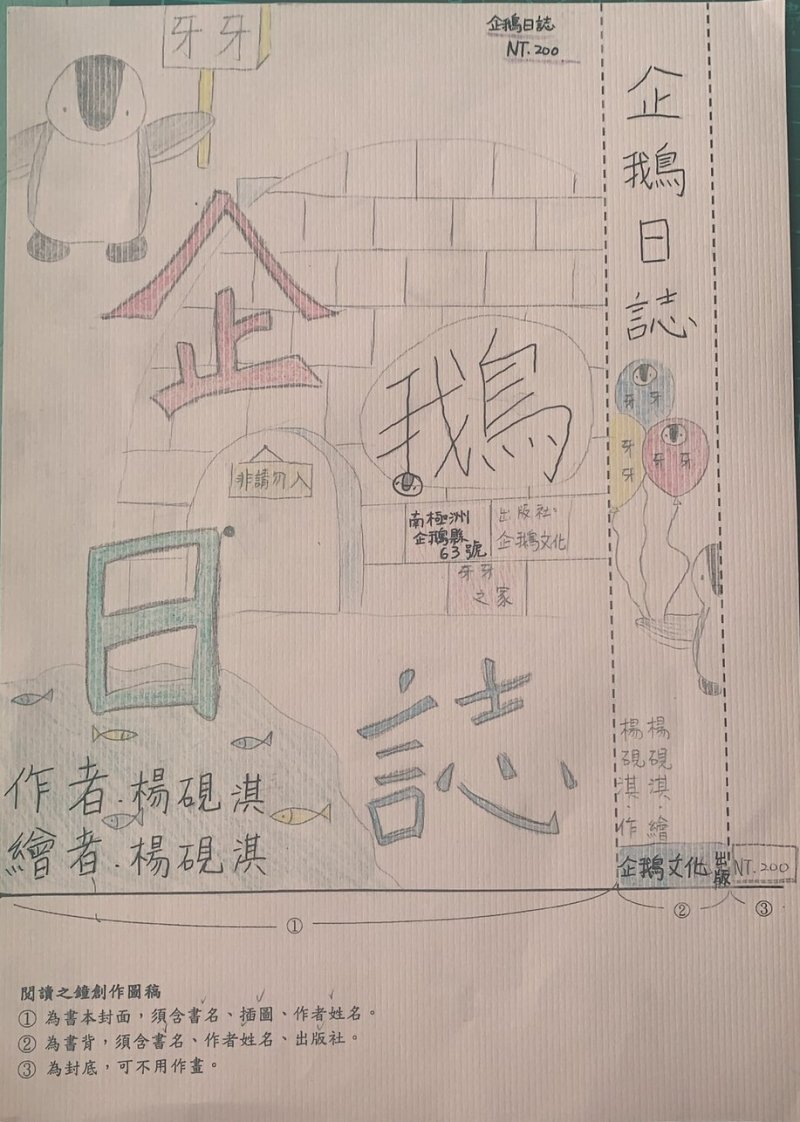 牙牙
企鵝日誌
NT.200
企鵝日誌
非請勿入
南極洲
企鵝縣
63號
出版社:
企鵝文化
牙牙
之家
作者.楊硯淇
繪者.楊硯淇
企鵝日誌
牙牙
牙牙
牙牙
楊硯淇.作
楊硯淇.繪
企鵝文化出版
NT.200
①
②
③
閱讀之鐘創作圖稿
① 為書本封面，須含書名、插圖、作者姓名。
② 為書背，須含書名、作者姓名、出版社。
③ 為封底，可不用作畫。